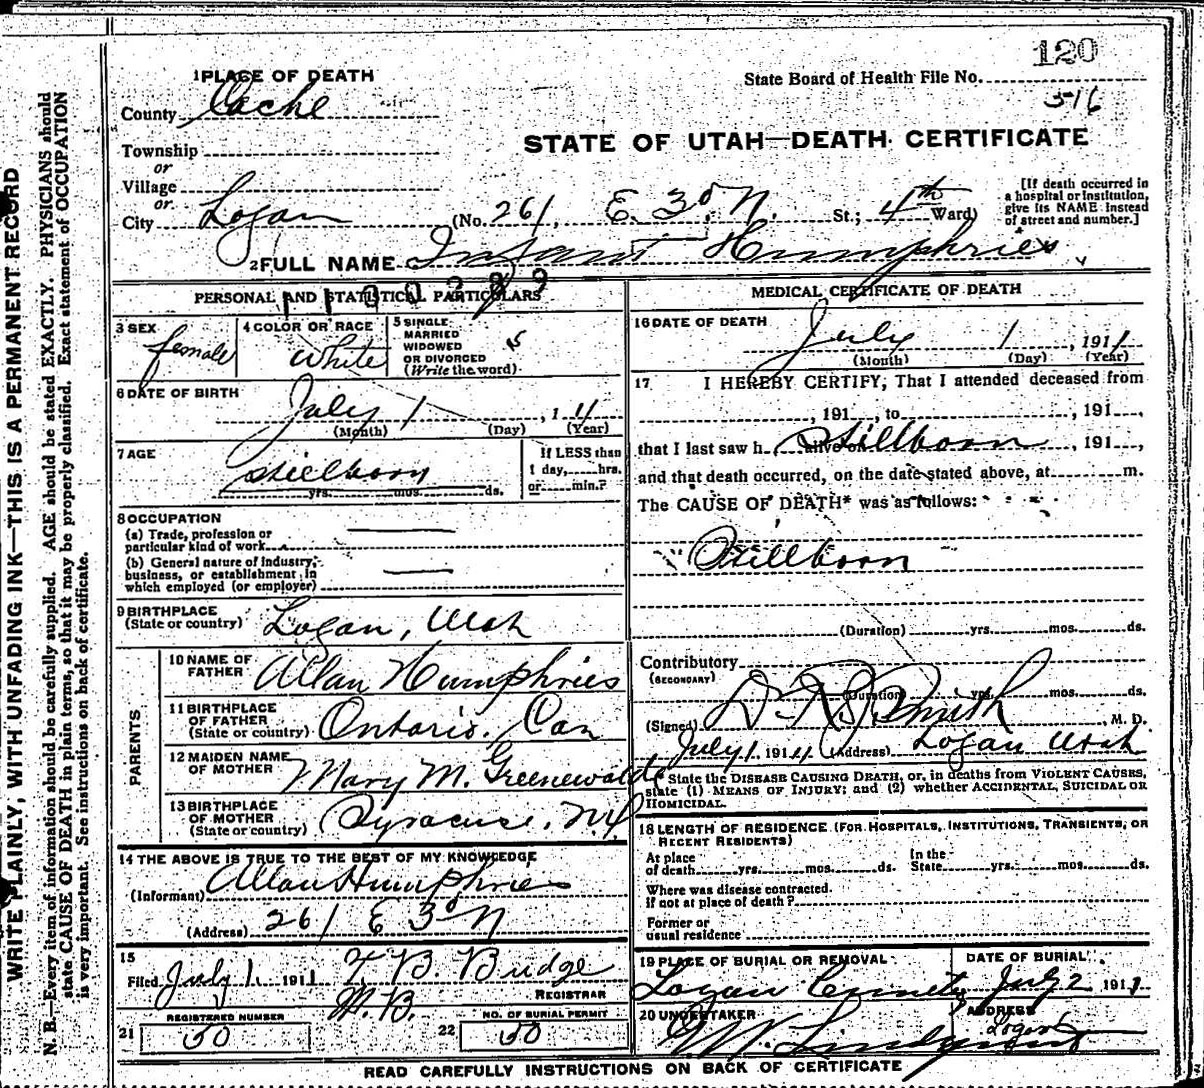 WRITE PLAINLY, WITH UNFADING INK—THIS IS A PERMANENT RECORD
N. B.—Every item of information should be carefully supplied. AGE should be stated EXACTLY. PHYSICIANS should
state CAUSE OF DEATH in plain terms, so that it may be properly classified. Exact statement of OCCUPATION
is very important. See instructions on back of certificate.
120
State Board of Health File No.
516
1 PLACE OF DEATH
County Cache
STATE OF UTAH—DEATH CERTIFICATE
Township
or
Village
or
City Logan (No. 261, E. 3d N. St.; 4th Ward)
[If death occurred in
a hospital or institution,
give its NAME instead
of street and number.]
2 FULL NAME Infant Humphries
PERSONAL AND STATISTICAL PARTICULARS
3 SEX
female
4 COLOR OR RACE
White
5 SINGLE
MARRIED
WIDOWED
OR DIVORCED
(Write the word)
S
6 DATE OF BIRTH
July 1, 1 11
(Month) (Day) (Year)
7 AGE
stillborn
yrs. mos. ds.
If LESS than
1 day, hrs.
or min.?
8 OCCUPATION
(a) Trade, profession or
particular kind of work
(b) General nature of industry,
business, or establishment in
which employed (or employer)
9 BIRTHPLACE
(State or country) Logan, Utah
PARENTS
10 NAME OF
FATHER Allan Humphries
11 BIRTHPLACE
OF FATHER
(State or country) Ontario. Can
12 MAIDEN NAME
OF MOTHER Mary M. Greenewalde
13 BIRTHPLACE
OF MOTHER
(State or country) Syracuse, NY
14 THE ABOVE IS TRUE TO THE BEST OF MY KNOWLEDGE
(Informant) Allan Humphries
(Address) 261 E 3d N
15
Filed July 1. 1911 T. B. Budge
M.B. REGISTRAR
21 REGISTERED NUMBER
50
22 NO. OF BURIAL PERMIT
50
MEDICAL CERTIFICATE OF DEATH
16 DATE OF DEATH
July 1, 1911
(Month) (Day) (Year)
17 I HEREBY CERTIFY, That I attended deceased from
, 191 , to , 191 ,
that I last saw h alive on Stillborn , 191 ,
and that death occurred, on the date stated above, at m.
The CAUSE OF DEATH* was as follows:
Stillborn
(Duration) yrs. mos. ds.
Contributory
(SECONDARY)
(Duration) yrs. mos. ds.
(Signed) Smith M. D.
July 1, 1911 (Address) Logan Utah
* State the DISEASE CAUSING DEATH, or, in deaths from VIOLENT CAUSES,
state (1) MEANS OF INJURY; and (2) whether ACCIDENTAL, SUICIDAL OR
HOMICIDAL.
18 LENGTH OF RESIDENCE (FOR HOSPITALS, INSTITUTIONS, TRANSIENTS, OR
RECENT RESIDENTS)
At place
of death yrs. mos. ds. In the
State yrs. mos. ds.
Where was disease contracted.
if not at place of death?
Former or
usual residence
19 PLACE OF BURIAL OR REMOVAL
Logan
DATE OF BURIAL
July 2 1911
20 UNDERTAKER
ADDRESS
Logan
READ CAREFULLY INSTRUCTIONS ON BACK OF CERTIFICATE